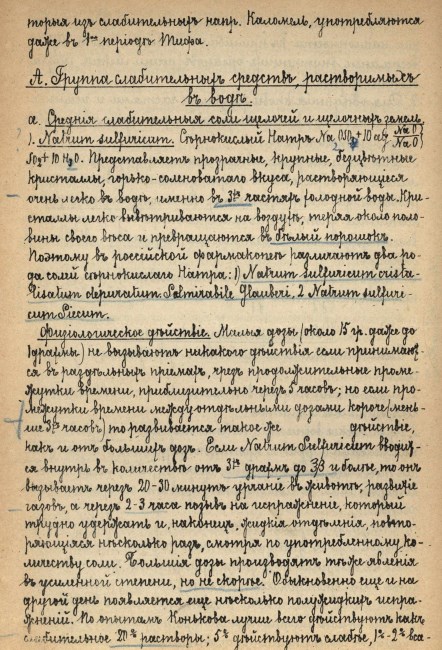 торыя изъ слабительныхъ напр. Каломель, употребляются
даже въ 1омъ періодѣ Тифа.
А. Группа слабительныхъ средствъ, растворимыхъ
въ водѣ.
а. Среднія слабительныя соли щелочей и щелочныхъ земель
1). Natrum sulfuricum. Сѣрнокислый Натръ Na2 OSO3 + 10 aq { Na O } Na O }
SO2 + 10 H2O. Представляетъ прозрачные, крупные, безцвѣтные
кристаллы, горько-солоноватаго вкуса, растворяющіеся
очень легко въ водѣ, именно въ 3хъ частяхъ холодной воды. Кри-
сталлы легко вывѣтриваются на воздухѣ, теряя около поло-
вины своего вѣса и превращаются въ бѣлый порошокъ.
Поэтому въ россійской фармакопеѣ различаютъ два ро-
да солей сѣрнокислаго Натра: 1) Natrum sulfuricum crista-
lisatum depuratum Salmirabile Glauberi. 2 Natrum sulfuri-
cum Siccum.
Физіологическое дѣйствіе. Малыя дозы (около 15 гр. даже до
1 драхмы) не вызываютъ никакого дѣйствія если принимают-
ся въ раздѣльныхъ пріемахъ, чрезъ продолжительные проме-
жутки времени, приблизительно черезъ 5 часовъ; но если про-
межутки времени между отдѣльными дозами короче (мень-
ше 3хъ часовъ) то развивается такое же дѣйствіе,
какъ и отъ большихъ дозъ. Если Natrum Sulfuricum вводит-
ся внутрь въ количествѣ отъ 3хъ драхмъ до ℥β и болѣе, то онъ
вызываетъ черезъ 20-30 минутъ урчаніе въ животѣ, развитіе
газовъ, а черезъ 2-3 часа позывъ на испражненіе, который
трудно удержать и, наконецъ, жидкія отдѣленія, повто-
ряющіяся нѣсколько разъ, смотря по употребленному ко-
личеству соли. Большія дозы производятъ тѣ же явленія
въ усиленной степени, но не скорѣе. Обыкновенно еще и на
другой день появляется еще нѣсколько полужидкихъ испра-
жненій. По опытамъ Конькова лучше всего дѣйствуютъ какъ
слабительное 20% растворы; 5% дѣйствуютъ слабѣе, 1%-2% вса-